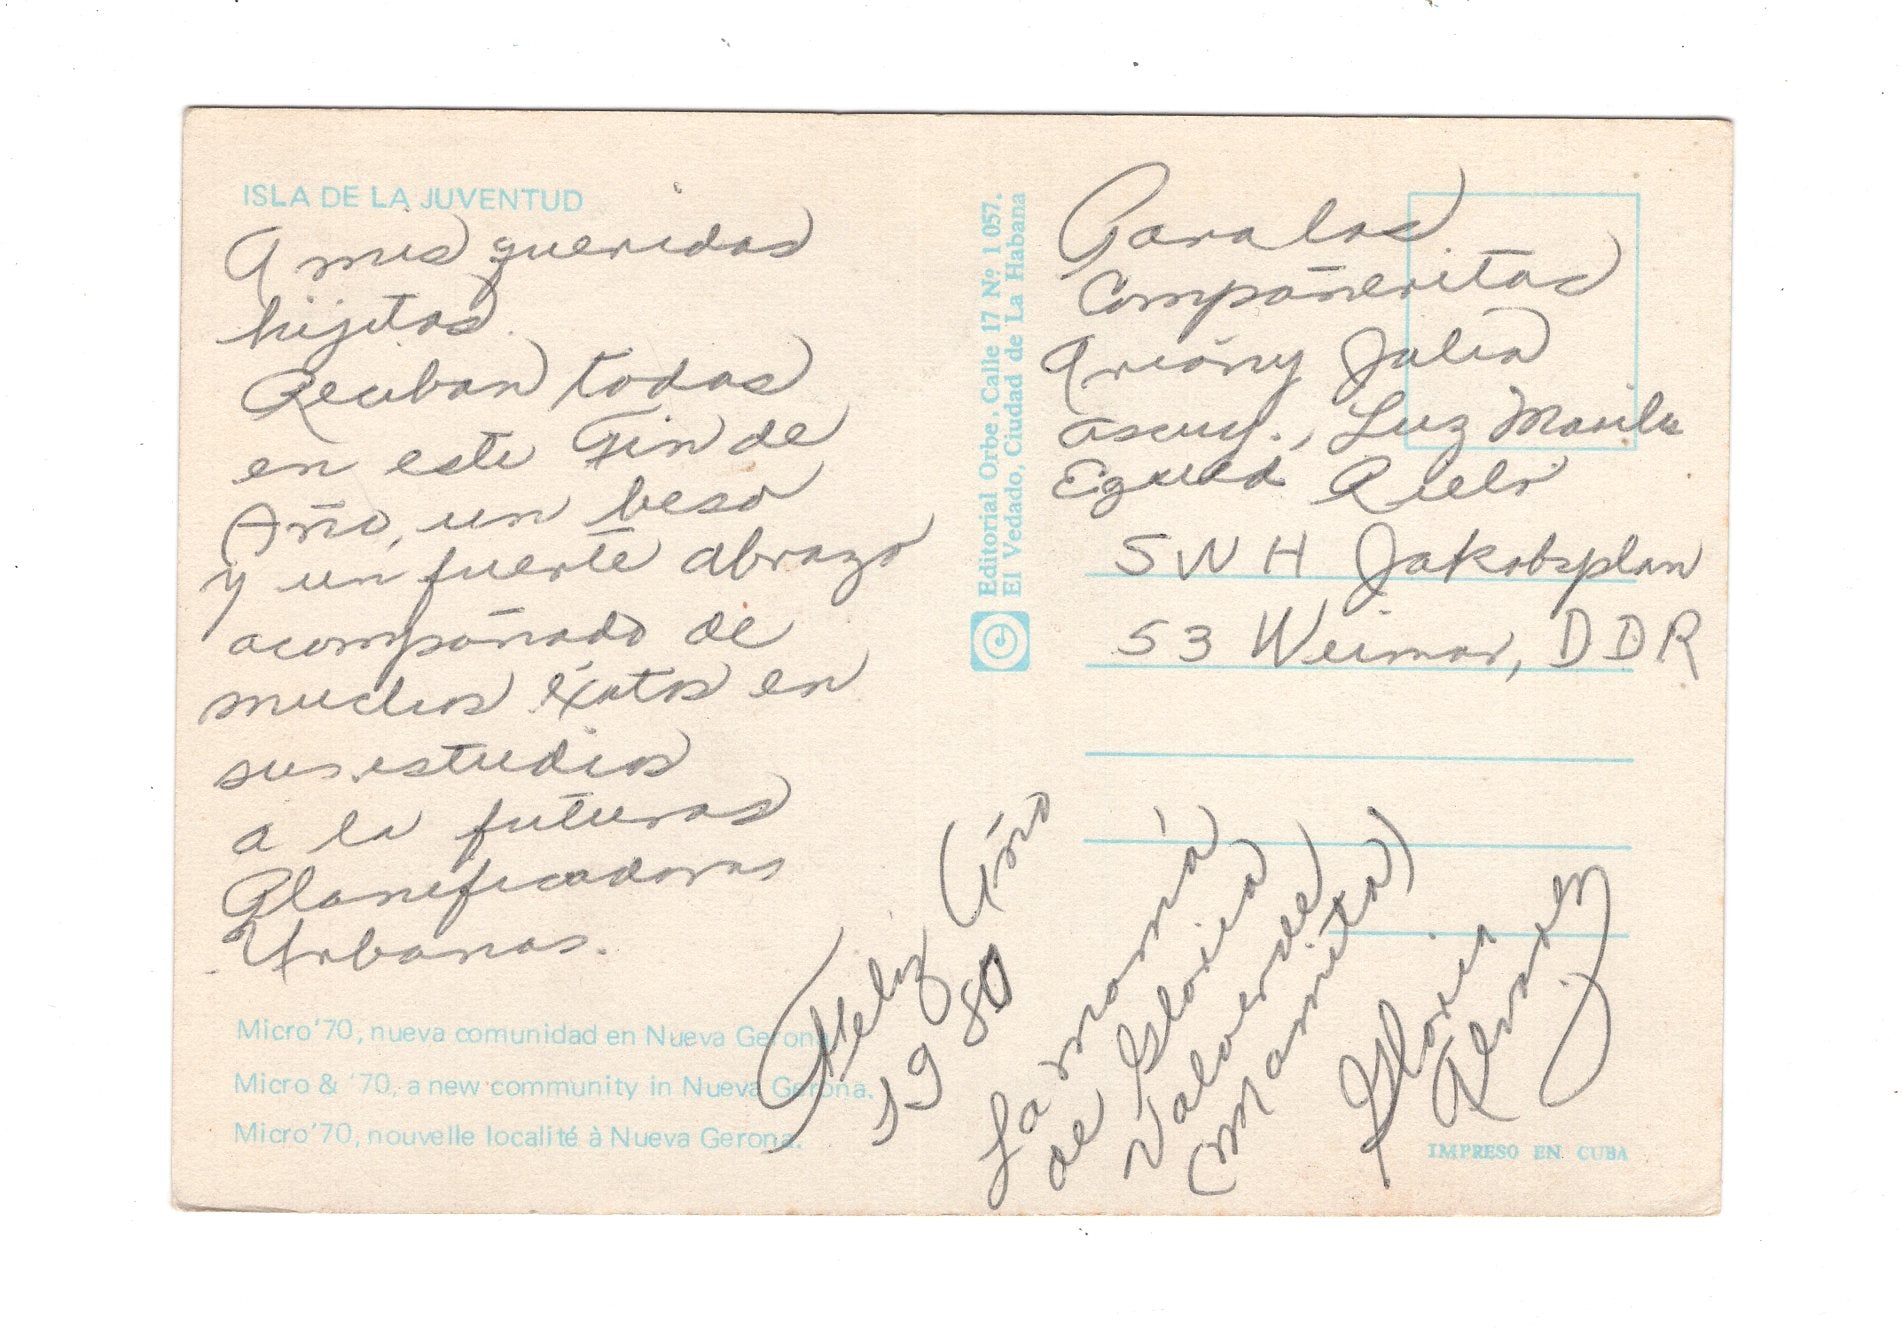 ISLA DE LA JUVENTUD
A mis queridas
hijitas.
Reciban todas
en este Fin de
Año, un beso
y un fuerte abrazo
acompañado de
muchos éxitos en
sus estudios
a la futuras
Planificadoras
Urbanas.
Micro'70, nueva comunidad en Nueva Gerona.
Micro & '70, a new community in Nueva Gerona.
Micro'70, nouvelle localité à Nueva Gerona.
Feliz Año
1980
Editorial Orbe, Calle 17 Nº 1057.
El Vedado, Ciudad de La Habana
Para las
Compañeritas
Julia
Luz
SWH Jakobsplan
53 Weimar, DDR
La mamá
de Gloria
Valverde
(mamita)
Gloria
IMPRESO EN CUBA